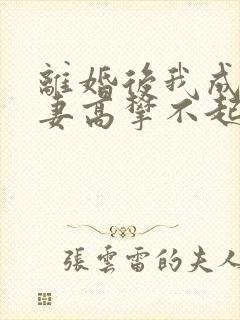 離婚後我成
妻高攀不起
張雲雷的夫人